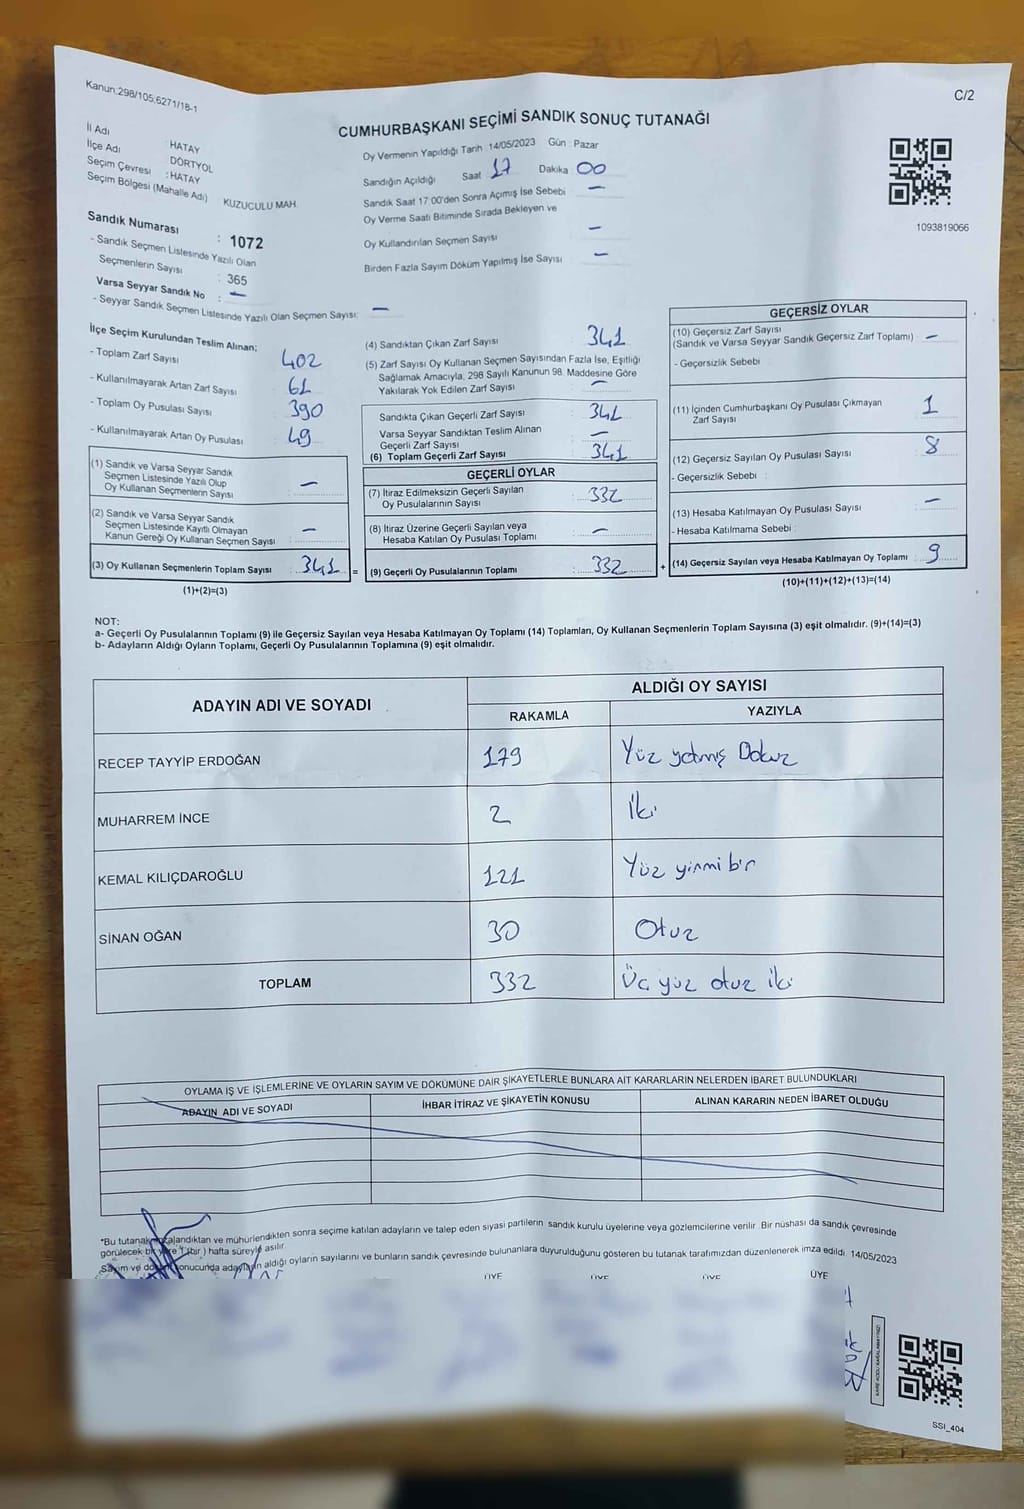 Kanun:298/105;6271/18-1
C/2
CUMHURBAŞKANI SEÇİMİ SANDIK SONUÇ TUTANAĞI
İl Adı HATAY
İlçe Adı DÖRTYOL
Seçim Çevresi : HATAY
Seçim Bölgesi (Mahalle Adı) KUZUCULU MAH.
Sandık Numarası : 1072
- Sandık Seçmen Listesinde Yazılı Olan
Seçmenlerin Sayısı : 365
Varsa Seyyar Sandık No : –
- Seyyar Sandık Seçmen Listesinde Yazılı Olan Seçmen Sayısı: –
Oy Vermenin Yapıldığı Tarih :14/05/2023 Gün : Pazar
Sandığın Açıldığı Saat 17 Dakika 00
Sandık Saat 17:00'den Sonra Açımış İse Sebebi –
Oy Verme Saati Bitiminde Sırada Bekleyen ve
Oy Kullandırılan Seçmen Sayısı –
Birden Fazla Sayım Döküm Yapılmış İse Sayısı –
1093819066
İlçe Seçim Kurulundan Teslim Alınan;
- Toplam Zarf Sayısı 402
- Kullanılmayarak Artan Zarf Sayısı 61
- Toplam Oy Pusulası Sayısı 390
- Kullanılmayarak Artan Oy Pusulası 49
(1) Sandık ve Varsa Seyyar Sandık
Seçmen Listesinde Yazılı Olup
Oy Kullanan Seçmenlerin Sayısı : –
(2) Sandık ve Varsa Seyyar Sandık
Seçmen Listesinde Kayıtlı Olmayan
Kanun Gereği Oy Kullanan Seçmen Sayısı : –
(3) Oy Kullanan Seçmenlerin Toplam Sayısı : 341 =
(1)+(2)=(3)
(4) Sandıktan Çıkan Zarf Sayısı 341
(5) Zarf Sayısı Oy Kullanan Seçmen Sayısından Fazla İse, Eşitliği
Sağlamak Amacıyla, 298 Sayılı Kanunun 98. Maddesine Göre
Yakılarak Yok Edilen Zarf Sayısı –
Sandıkta Çıkan Geçerli Zarf Sayısı : 341
Varsa Seyyar Sandıktan Teslim Alınan
Geçerli Zarf Sayısı : –
(6) Toplam Geçerli Zarf Sayısı : 341
GEÇERLİ OYLAR
(7) İtiraz Edilmeksizin Geçerli Sayılan
Oy Pusulalarının Sayısı : 332
(8) İtiraz Üzerine Geçerli Sayılan veya
Hesaba Katılan Oy Pusulası Toplamı : –
(9) Geçerli Oy Pusulalarının Toplamı : 332 +
GEÇERSİZ OYLAR
(10) Geçersiz Zarf Sayısı
(Sandık ve Varsa Seyyar Sandık Geçersiz Zarf Toplamı) : –
- Geçersizlik Sebebi :
(11) İçinden Cumhurbaşkanı Oy Pusulası Çıkmayan
Zarf Sayısı : 1
(12) Geçersiz Sayılan Oy Pusulası Sayısı : 8
- Geçersizlik Sebebi :
(13) Hesaba Katılmayan Oy Pusulası Sayısı : –
- Hesaba Katılmama Sebebi :
(14) Geçersiz Sayılan veya Hesaba Katılmayan Oy Toplamı : 9
(10)+(11)+(12)+(13)=(14)
NOT:
a- Geçerli Oy Pusulalarının Toplamı (9) ile Geçersiz Sayılan veya Hesaba Katılmayan Oy Toplamı (14) Toplamları, Oy Kullanan Seçmenlerin Toplam Sayısına (3) eşit olmalıdır. (9)+(14)=(3)
b- Adayların Aldığı Oyların Toplamı, Geçerli Oy Pusulalarının Toplamına (9) eşit olmalıdır.
ADAYIN ADI VE SOYADI
ALDIĞI OY SAYISI
RAKAMLA YAZIYLA
RECEP TAYYİP ERDOĞAN 179 Yüz yetmiş Dokuz
MUHARREM İNCE 2 İki
KEMAL KILIÇDAROĞLU 121 Yüz yirmi bir
SİNAN OĞAN 30 Otuz
TOPLAM 332 Üç yüz otuz iki
OYLAMA İŞ VE İŞLEMLERİNE VE OYLARIN SAYIM VE DÖKÜMÜNE DAİR ŞİKAYETLERLE BUNLARA AİT KARARLARIN NELERDEN İBARET BULUNDUKLARI
ADAYIN ADI VE SOYADI İHBAR İTİRAZ VE ŞİKAYETİN KONUSU ALINAN KARARIN NEDEN İBARET OLDUĞU
*Bu tutanak sonra seçime katılan adayların ve talep eden siyasi partilerin sandık kurulu üyelerine veya gözlemcilerine verilir. Bir nüshası da sandık çevresinde
görülecek bir yere 1 (bir) hafta süreyle asılır.
Sayım ve döküm sonucunda adayların aldığı oyların sayılarını ve bunların sandık çevresinde bulunanlara duyurulduğunu gösteren bu tutanak tarafımızdan düzenlenerek imza edildi. 14/05/2023
ÜYE ÜYE ÜYE ÜYE
SSI_404